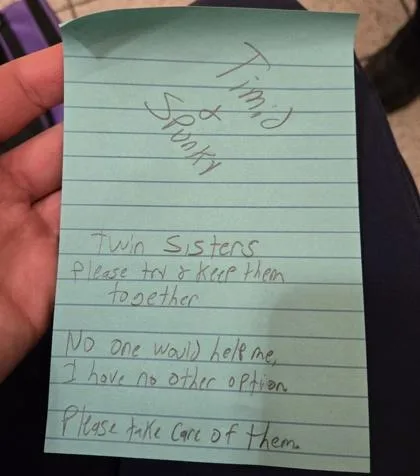 Timid
&
Spunky
Twin Sisters
Please try & keep them
together
No one would help me,
I have no other option.
Please take care of them.